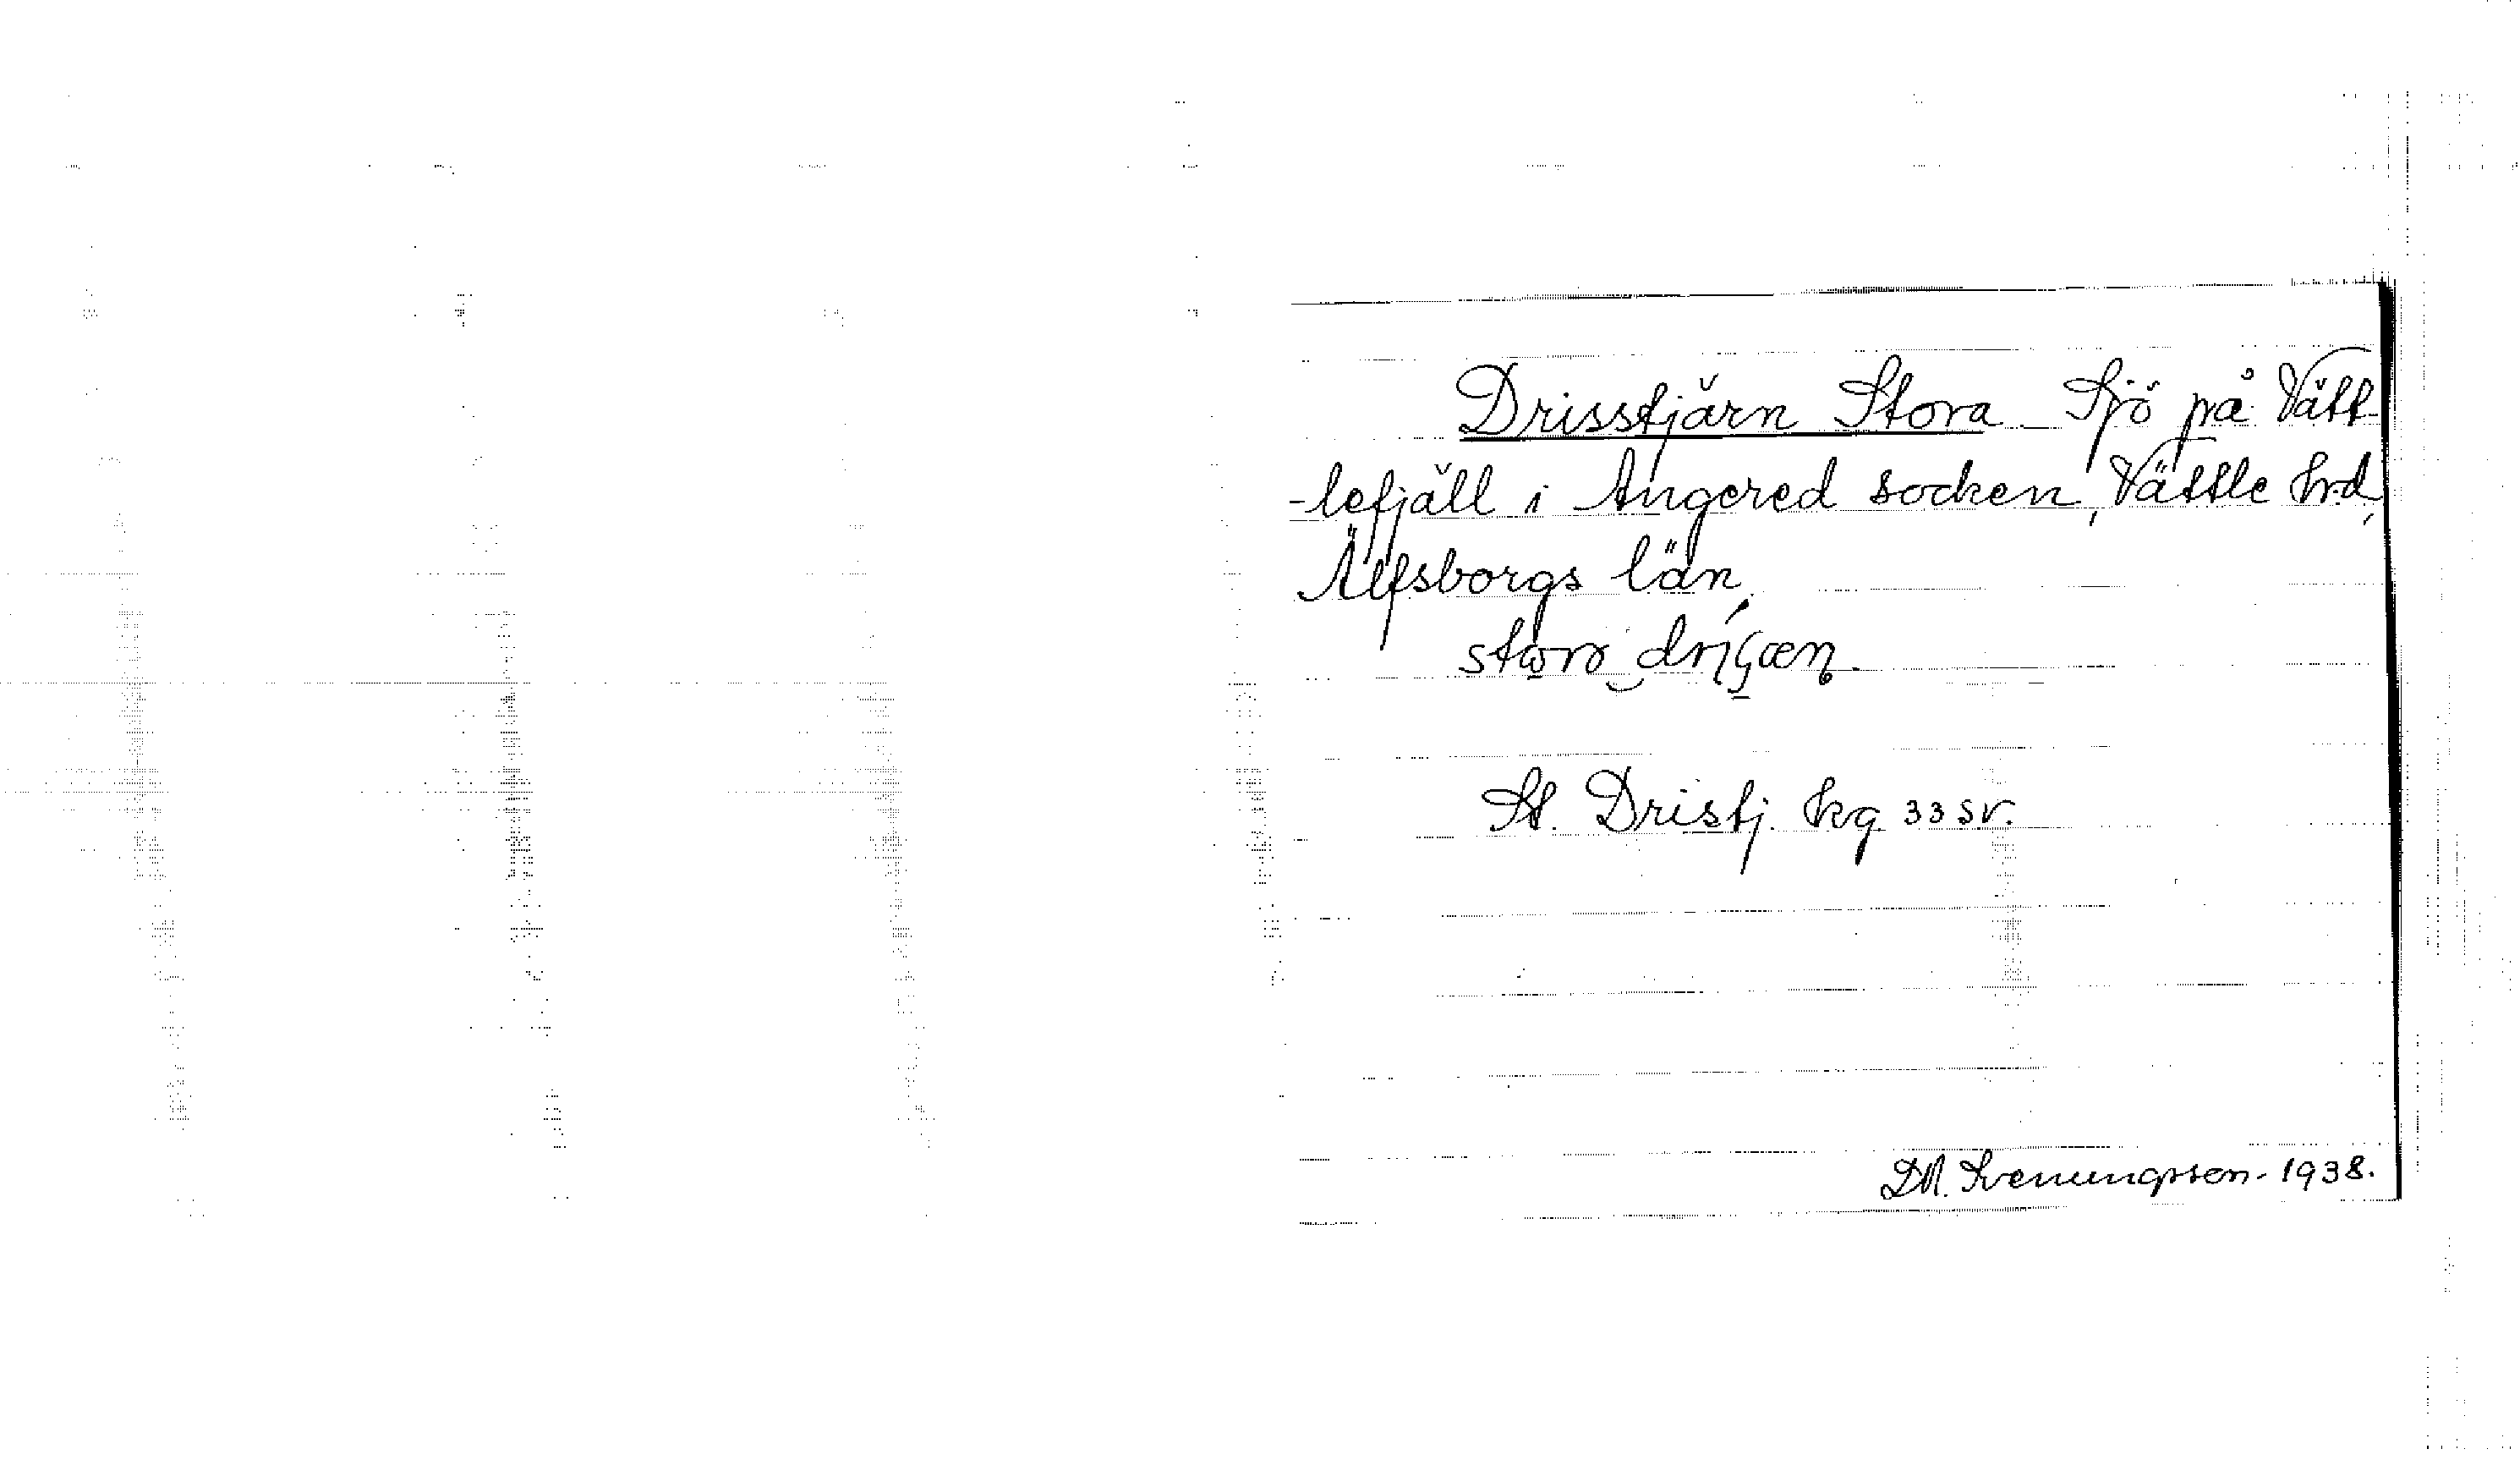 Drisstjärn Stora Sjö på Vätt
-lefjäll i Angered socken, Vättle hd,
Älfsborgs län.
St. Dristj. kg 33 sv.
D.A. Svenungsson - 1938.